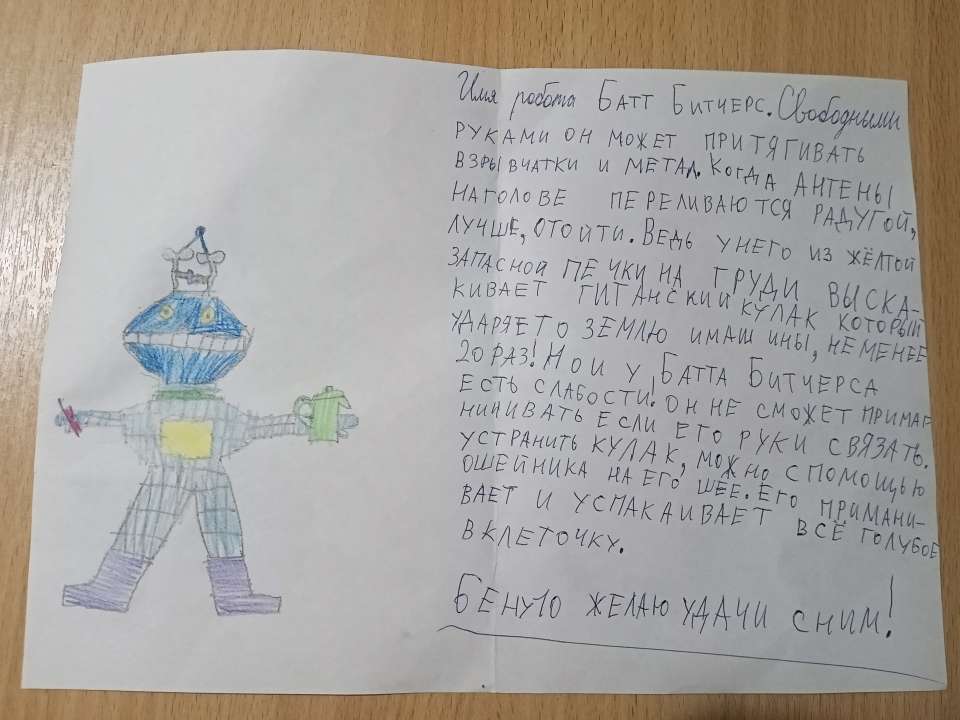 Имя робота Батт Битчерс. Свободными
руками он может притягивать
взрывчатки и метал. Когда антены
наголове переливаются радугой,
лучше, отоити. Ведь унего из жёлтой
запасной печки на груди выска-
кивает гитанский кулак который
ударяето землю имашины, не менее
20 раз! Но и у Батта Битчерса
есть слабости! Он не сможет примаг
ничивать если его руки связать.
Устранить кулак, можно с помощью
ошейника на его шее. Его примани-
вает и успакаивает всё голубое
в клеточку.
Бену10 желаю удачи сним!